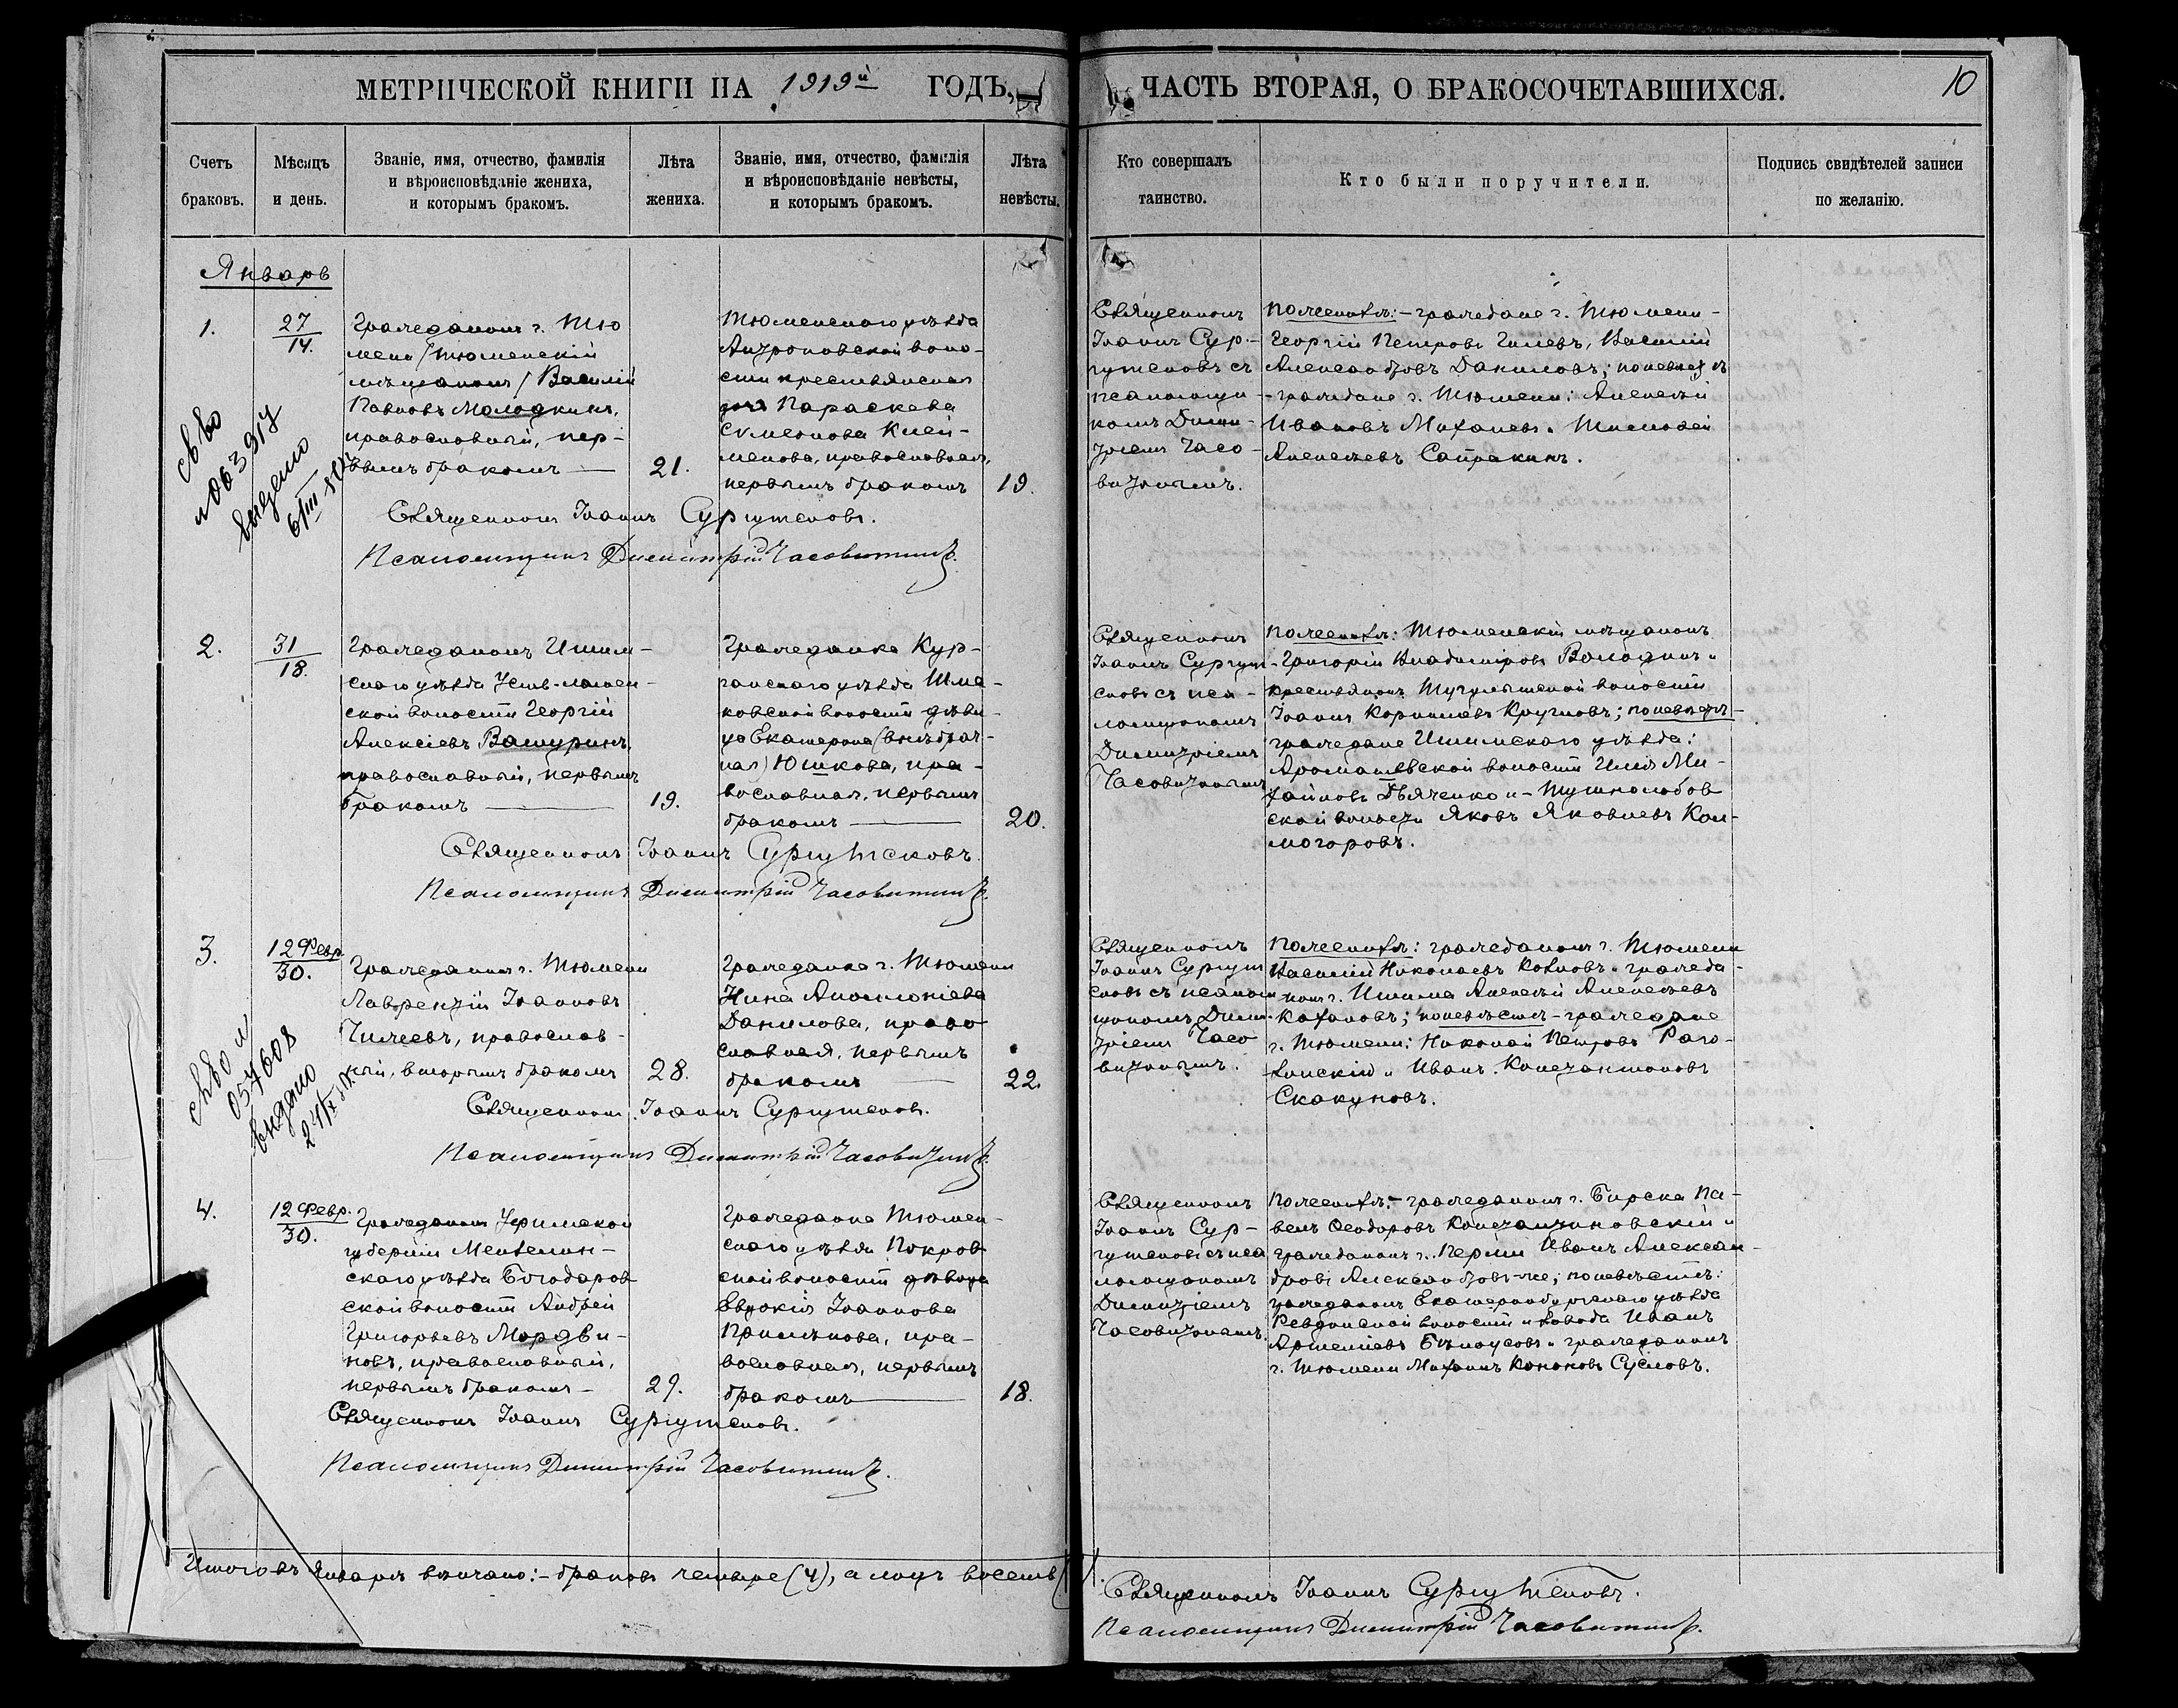 МЕТРИЧЕСКОЙ КНИГИ НА 1919й ГОДЪ,
ЧАСТЬ ВТОРАЯ, О БРАКОСОЧЕТАВШИХСЯ.
10
Счетъ браковъ.
Мѣсяцъ и день.
Званіе, имя, отчество, фамилія
и вѣроисповѣданіе жениха,
и которымъ бракомъ.
Лѣта жениха.
Званіе, имя, отчество, фамилія
и вѣроисповѣданіе невѣсты,
и которымъ бракомъ.
Лѣта невѣсты.
Кто совершалъ таинство.
Кто были поручители.
Подпись свидѣтелей записи
по желанію.
Январь
1.
27/14.
Гражданинъ г. Тю
мени (тюменскій
мѣщанинъ) Василій
Павловъ Молодкинъ,
православный, пер-
вымъ бракомъ —
21.
Тюменскаго уѣзда
Антроповской воло-
сти крестьянская
дочь Параскева
Симеонова Клей-
менова, православная,
первымъ бракомъ
19.
Священникъ
Іоаннъ Сур-
гутсковъ съ
псаломщи-
комъ Дими-
тріемъ Часо-
витинымъ.
По женихѣ:- граждане г. Тюмени -
Георгій Петровъ Гилевъ, Василій
Александровъ Даниловъ; по невѣстѣ
- граждане г. Тюмени: Алексѣй
Ивановъ Михалевъ и Тимофей
Алексѣевъ Сапракинъ.
св во
№ 063917
выдено
6/III
Священникъ Іоаннъ Сургутсковъ.
Псаломщикъ Димитрій Часовитинъ.
2.
31/18.
Гражданинъ Ишим-
скаго уѣзда Усть-ламен-
ской волости Георгій
Алексіевъ Вашуринъ,
православный, первымъ
бракомъ —
19.
Гражданка Кур-
ганскаго уѣзда Шма-
ковской волости дѣви-
ца Екатерина (внѣбрач-
ная) Юшкова, пра-
вославная, первымъ
бракомъ —
20.
Священникъ
Іоаннъ Сургут-
сковъ съ пса-
ломщикомъ
Димитріемъ
Часовитинымъ
По женихѣ: Тюменскій мѣщанинъ
Григорій Владиміровъ Володинъ и
крестьянинъ Тугулымской волости
Іоаннъ Корниловъ Кругловъ; по невѣстѣ -
граждане Ишимскаго уѣзда:
Аромашевской волости Илія Ми-
хайловъ Дьяченко и - Тушнолобов
ской волости Яковъ Яковлевъ Кол-
могоровъ.
Священникъ Іоаннъ Сургутсковъ.
Псаломщикъ Димитрій Часовитинъ.
3.
12 Февр./30.
Гражданинъ г. Тюмени
Лаврентій Іоанновъ
Чижеевъ, православ-
ный, вторымъ бракомъ
28.
Гражданка г. Тюмени
Нина Аполлоніева
Данилова, право
славная, первымъ
бракомъ —
22.
Священникъ
Іоаннъ Сургут
сковъ съ псалом
щикомъ Дими-
тріемъ Часо
витинымъ.
По женихѣ: гражданинъ г. Тюмени
Василій Николаевъ Козловъ и гражда-
нинъ г. Ишима Алексѣй Алексѣевъ
Кохановъ; по невѣстѣ - граждане
г. Тюмени: Николай Петровъ Раго-
зинскій и Иванъ Константиновъ
Скакуновъ.
св во и
057608
выдано
24/IX
Священникъ Іоаннъ Сургутсковъ.
Псаломщикъ Димитрій Часовитинъ.
4.
12 Февр./30.
Гражданинъ Уфимской
губерніи Мензелин-
скаго уѣзда Богодаров
ской волости Андрей
Григорьевъ Мордви-
новъ, православный,
первымъ бракомъ -
29.
Гражданка Тюмен-
скаго уѣзда Покров
ской волости дѣвица
Евдокія Іоаннова
пра-
вославная, первымъ
бракомъ —
18.
Священникъ
Іоаннъ Сур-
гутсковъ съ пса
ломщикомъ
Димитріемъ
Часовитинымъ.
По женихѣ:- гражданинъ г. Бирска Па-
велъ Ѳеодоровъ Константиновскій и
гражданинъ г. Перми Иванъ Алексан-
дровъ Александровъ-же; по невѣстѣ:
гражданинъ Екатеринбургскаго уѣзда
Ревдинской волости и завода Иванъ
Артеміевъ Бѣлоусовъ и гражданинъ
г. Тюмени Михаилъ Кононовъ Сусловъ.
Священникъ Іоаннъ Сургутсковъ.
Псаломщикъ Димитрій Часовитинъ.
Итого въ Январѣ вѣнчано:- браковъ четыре (4), а лицъ восемь
Священникъ Іоаннъ Сургутсковъ.
Псаломщикъ Димитрій Часовитинъ.